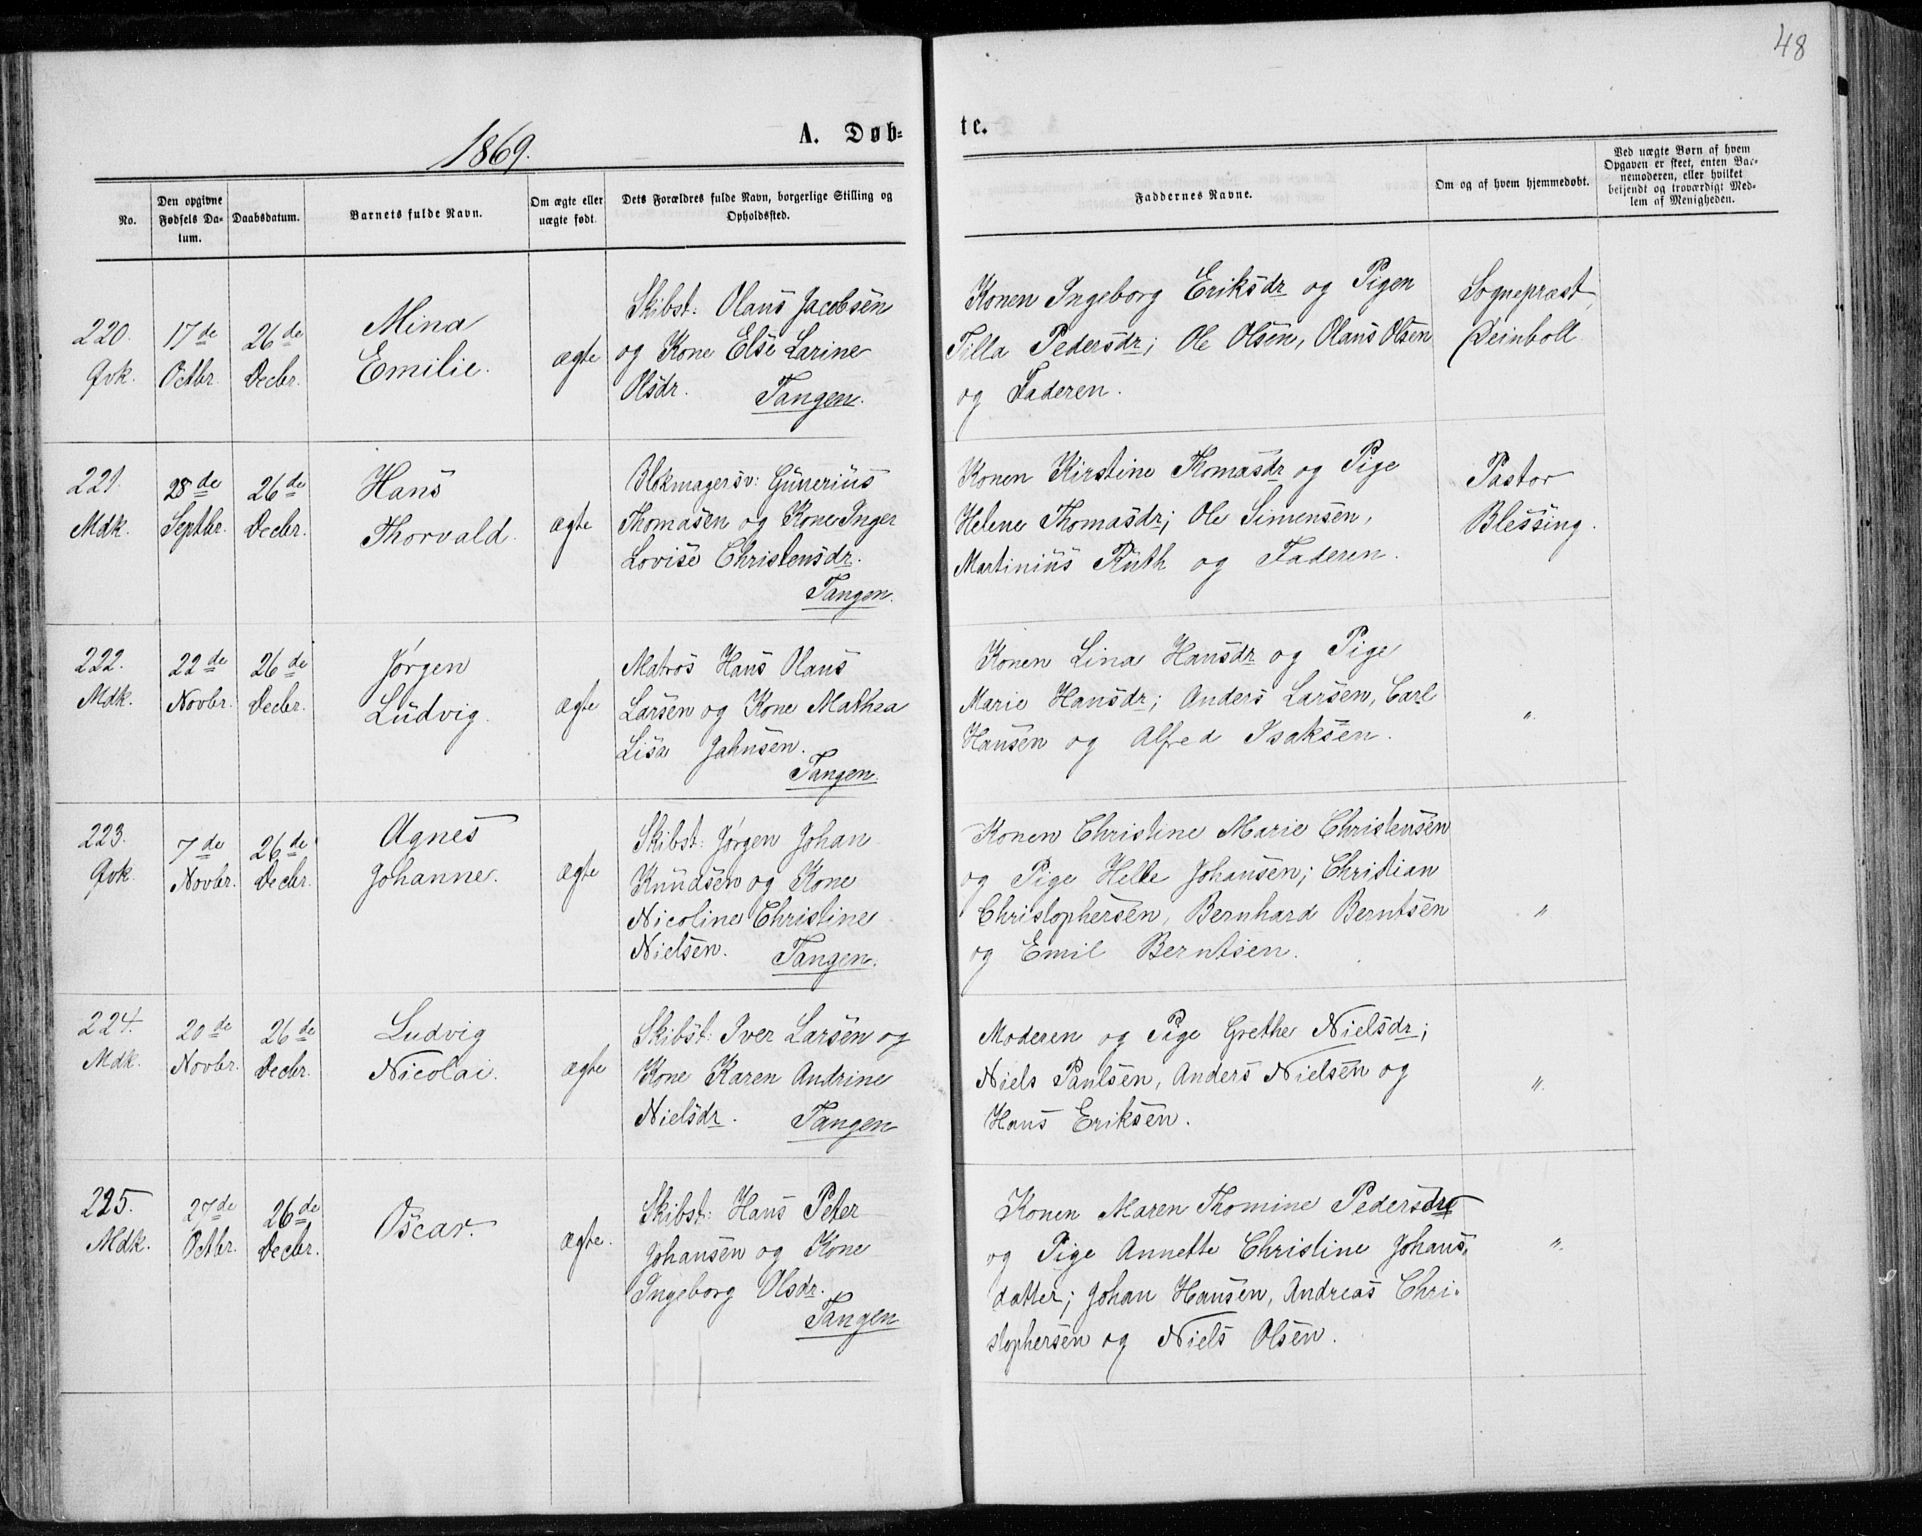 48
1869.
A. Døb-
te.
No.
Den opgivne
Fødsels Da-
tum.
Daabsdatum.
Barnets fulde Navn.
Om ægte eller
uægte født.
Dets Forældres fulde Navn, borgerlige Stilling og
Opholdssted.
Faddernes Navne.
Om og af hvem hjemmedøbt.
Ved uægte Børn af hvem
Opgaven er skeet, enten Bar-
nemoderen, eller hvilket
beijendt og troværdigt Med-
lem af Menigheden.
220.
Qvk.
17de
Octbr.
26de
Decbr.
Mina
Emilie.
ægte
Skibst: Olaus Jacobsen
og Kone Else Larine
Olsdr. Tangen.
Konen Ingeborg Eriksdr og Pigen
Tilla Pedersdr; Ole Olsen, Olaus Olsen
og Faderen.
Sognepræst
Deinboll.
221.
Mdk.
28de
Septbr.
26de
Decbr.
Hans
Thorvald.
ægte
Blokmagersv: Gunerius
Thomasen og Kone Inger
Lovise Christensdr.
Tangen.
Konen Kirstine Thomasdr og Pige
Helene Thomasdr; Ole Simensen,
Martinius Ruth og Faderen.
Pastor
Blessing.
222.
Mdk.
22de
Novbr.
26de
Decbr.
Jørgen
Ludvig.
ægte
Matros Hans Olaus
Larsen og Kone Mathea
Lisa Jahnsen.
Tangen.
Konen Lina Hansdr og Pige
Marie Hansdr; Anders Larsen, Carl
Hansen og Alfred Isaksen.
"
223.
Qvk.
7de
Novbr.
26de
Decbr.
Agnes
Johanne.
ægte
Skibst: Jørgen Johan
Knudsen og Kone
Nicoline Christine
Nielsen. Tangen.
Konen Christine Marie Christensen
og Pige Helle Johansen; Christian
Christophersen, Bernhard Berntsen
og Emil Berntsen.
"
224.
Mdk.
20de
Novbr.
26de
Decbr.
Ludvig
Nicolai.
ægte
Skibst: Iver Larsen og
Kone Karen Andrine
Nielsdr. Tangen
Moderen og Pige Grethe Nielsdr;
Niels Paulsen, Anders Nielsen og
Hans Eriksen.
"
225.
Mdk.
27de
Octbr.
26de
Decbr.
Oscar.
ægte.
Skibst: Hans Peter
Johansen og Kone
Ingeborg Olsdr.
Tangen
Konen Maren Thomine Pedersdr
og Pige Annette Christine Johans
datter; Johan Hansen, Andreas Chri-
stophersen og Niels Olsen.
"